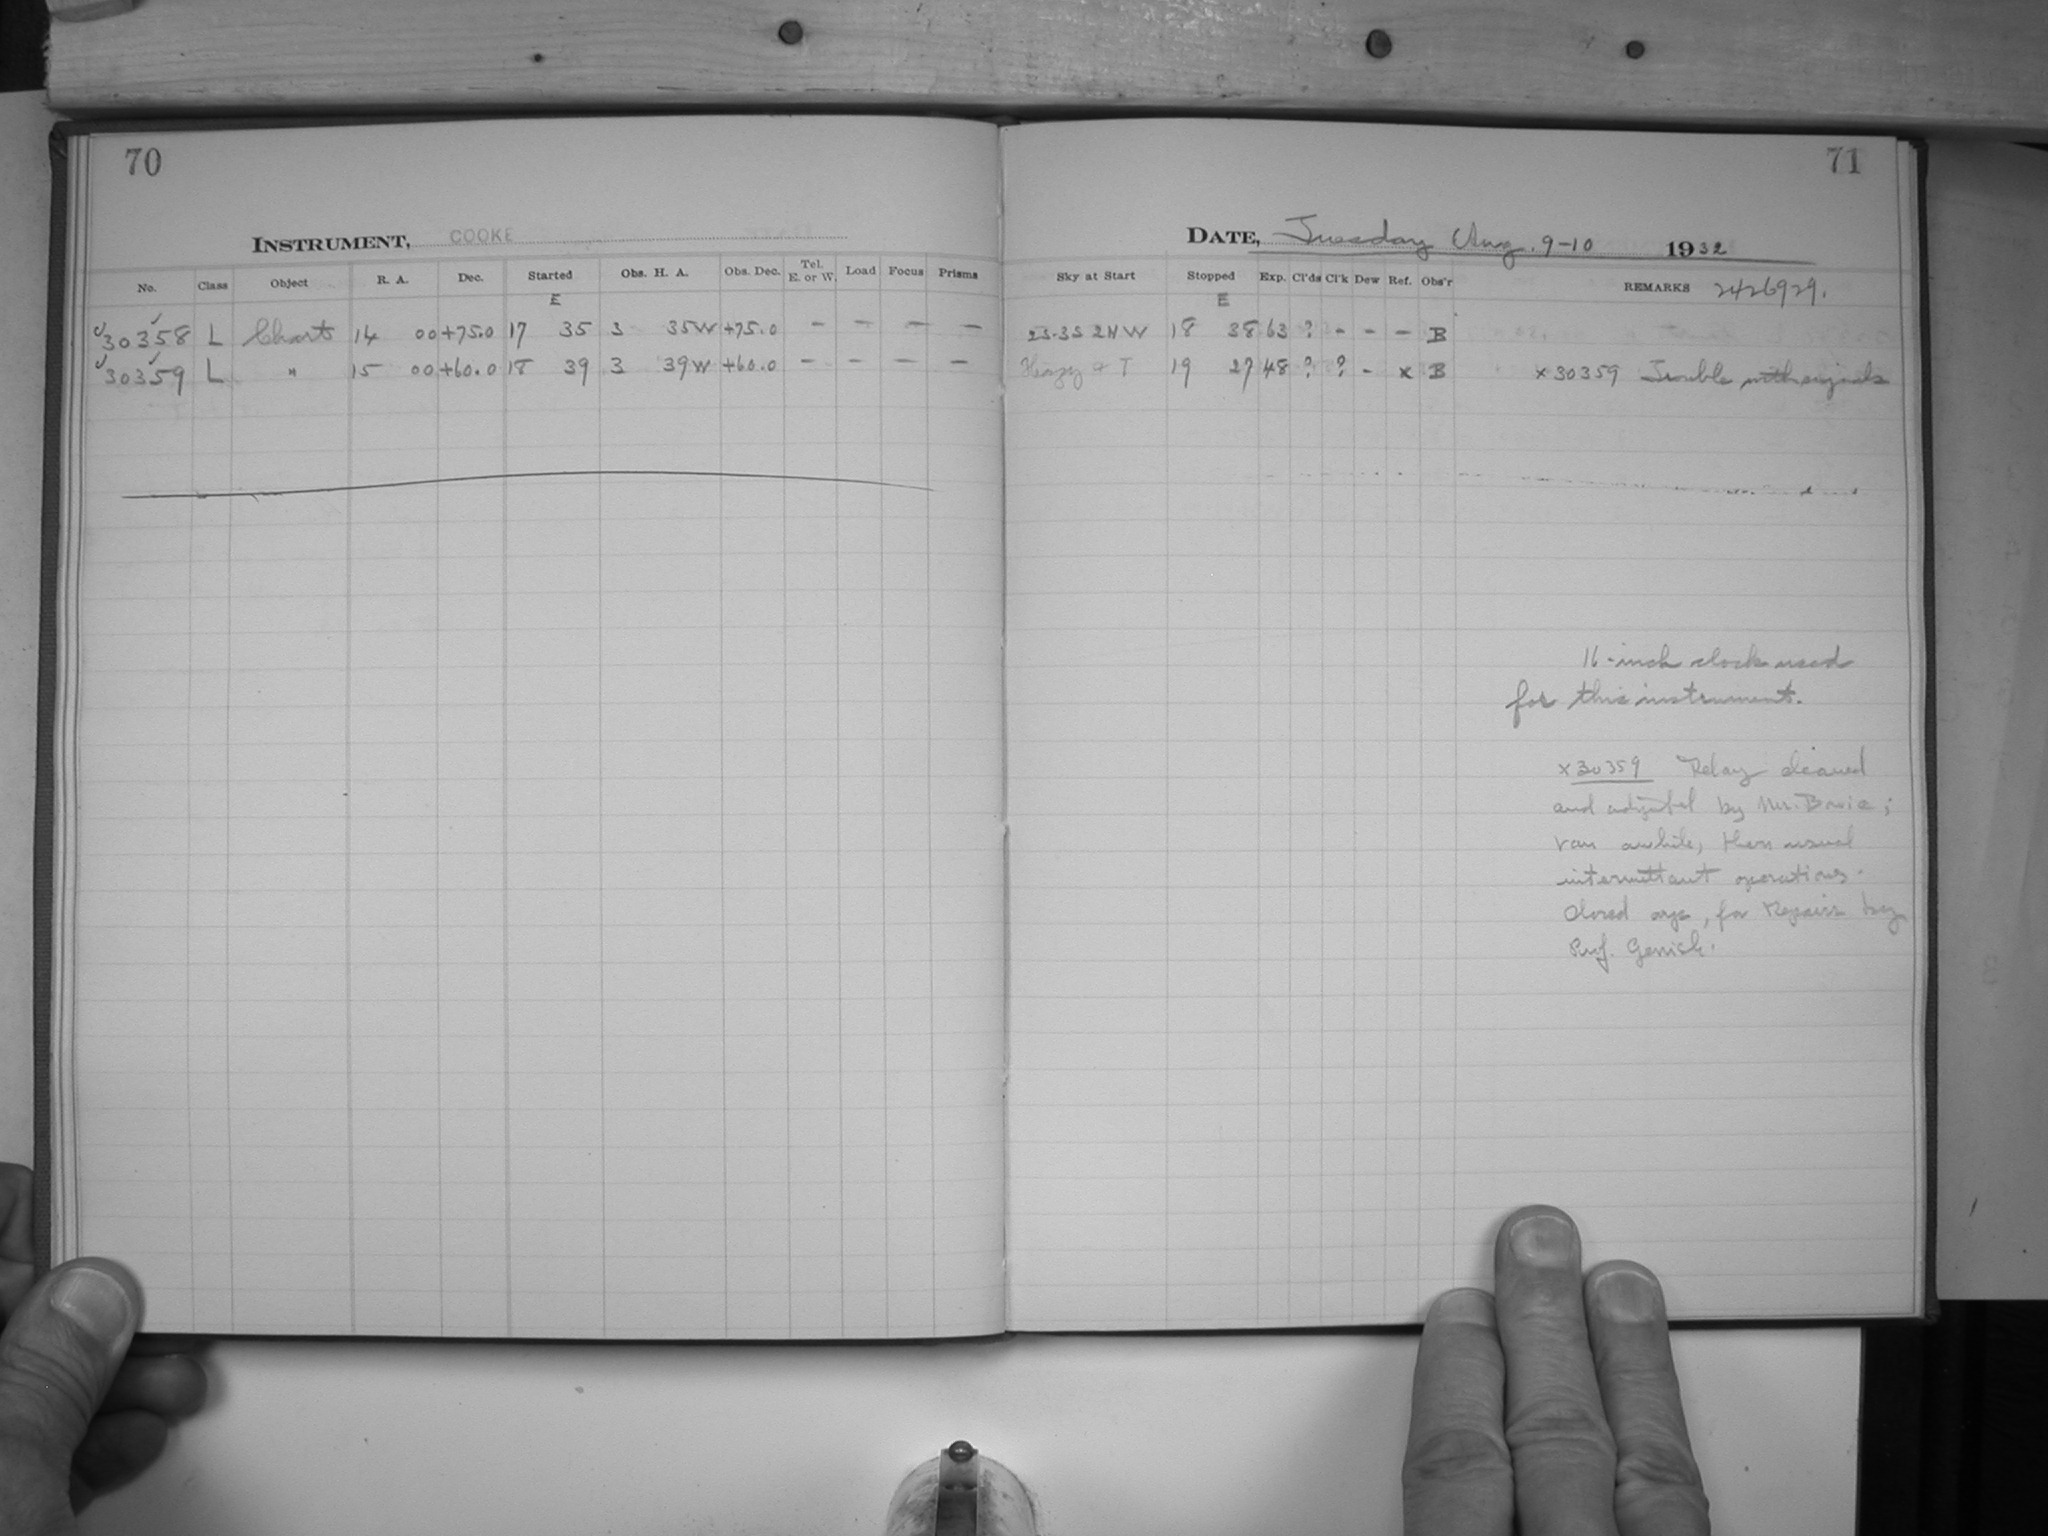 70
71
INSTRUMENT, COOKE
DATE, Tuesday Aug. 9-10 1932
No. Class Object R. A. Dec. Started Obs. H. A. Obs. Dec. Tel. E. or W. Load Focus Prisms Sky at Start Stopped Exp. Cl'ds Cl'k Dew Ref. Obs'r REMARKS 2426929.
E E
30358 L Charts 14 00 +75.0 17 35 3 35W +75.0 - - - - 23-3S 2NW 18 38 63 ? - - - B
30359 L " 15 00 +60.0 18 39 3 39W +60.0 - - - - Hazy & T 19 27 48 ? ? - x B x30359 Trouble with signals
16-inch clock used
for this instrument.
x30359 Relay cleaned
and adjusted by Mr. Bowie;
ran awhile, then usual
intermittant operations.
Closed up, for repairs by
Prof. Gerrish.